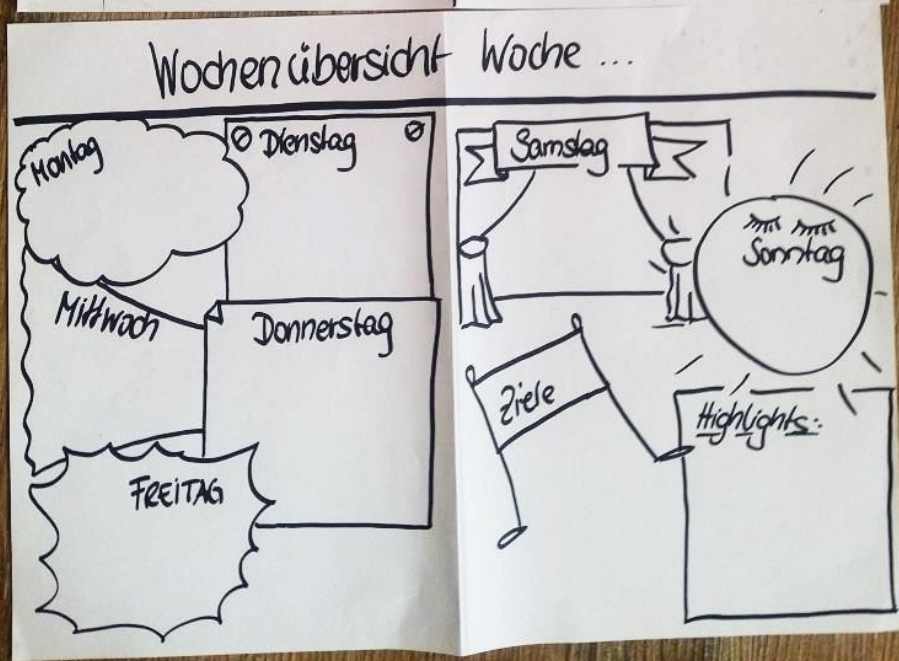 Wochenübersicht Woche ...
Montag
Dienstag
Mittwoch
Donnerstag
FREITAG
Samstag
Sonntag
Ziele
Highlights: